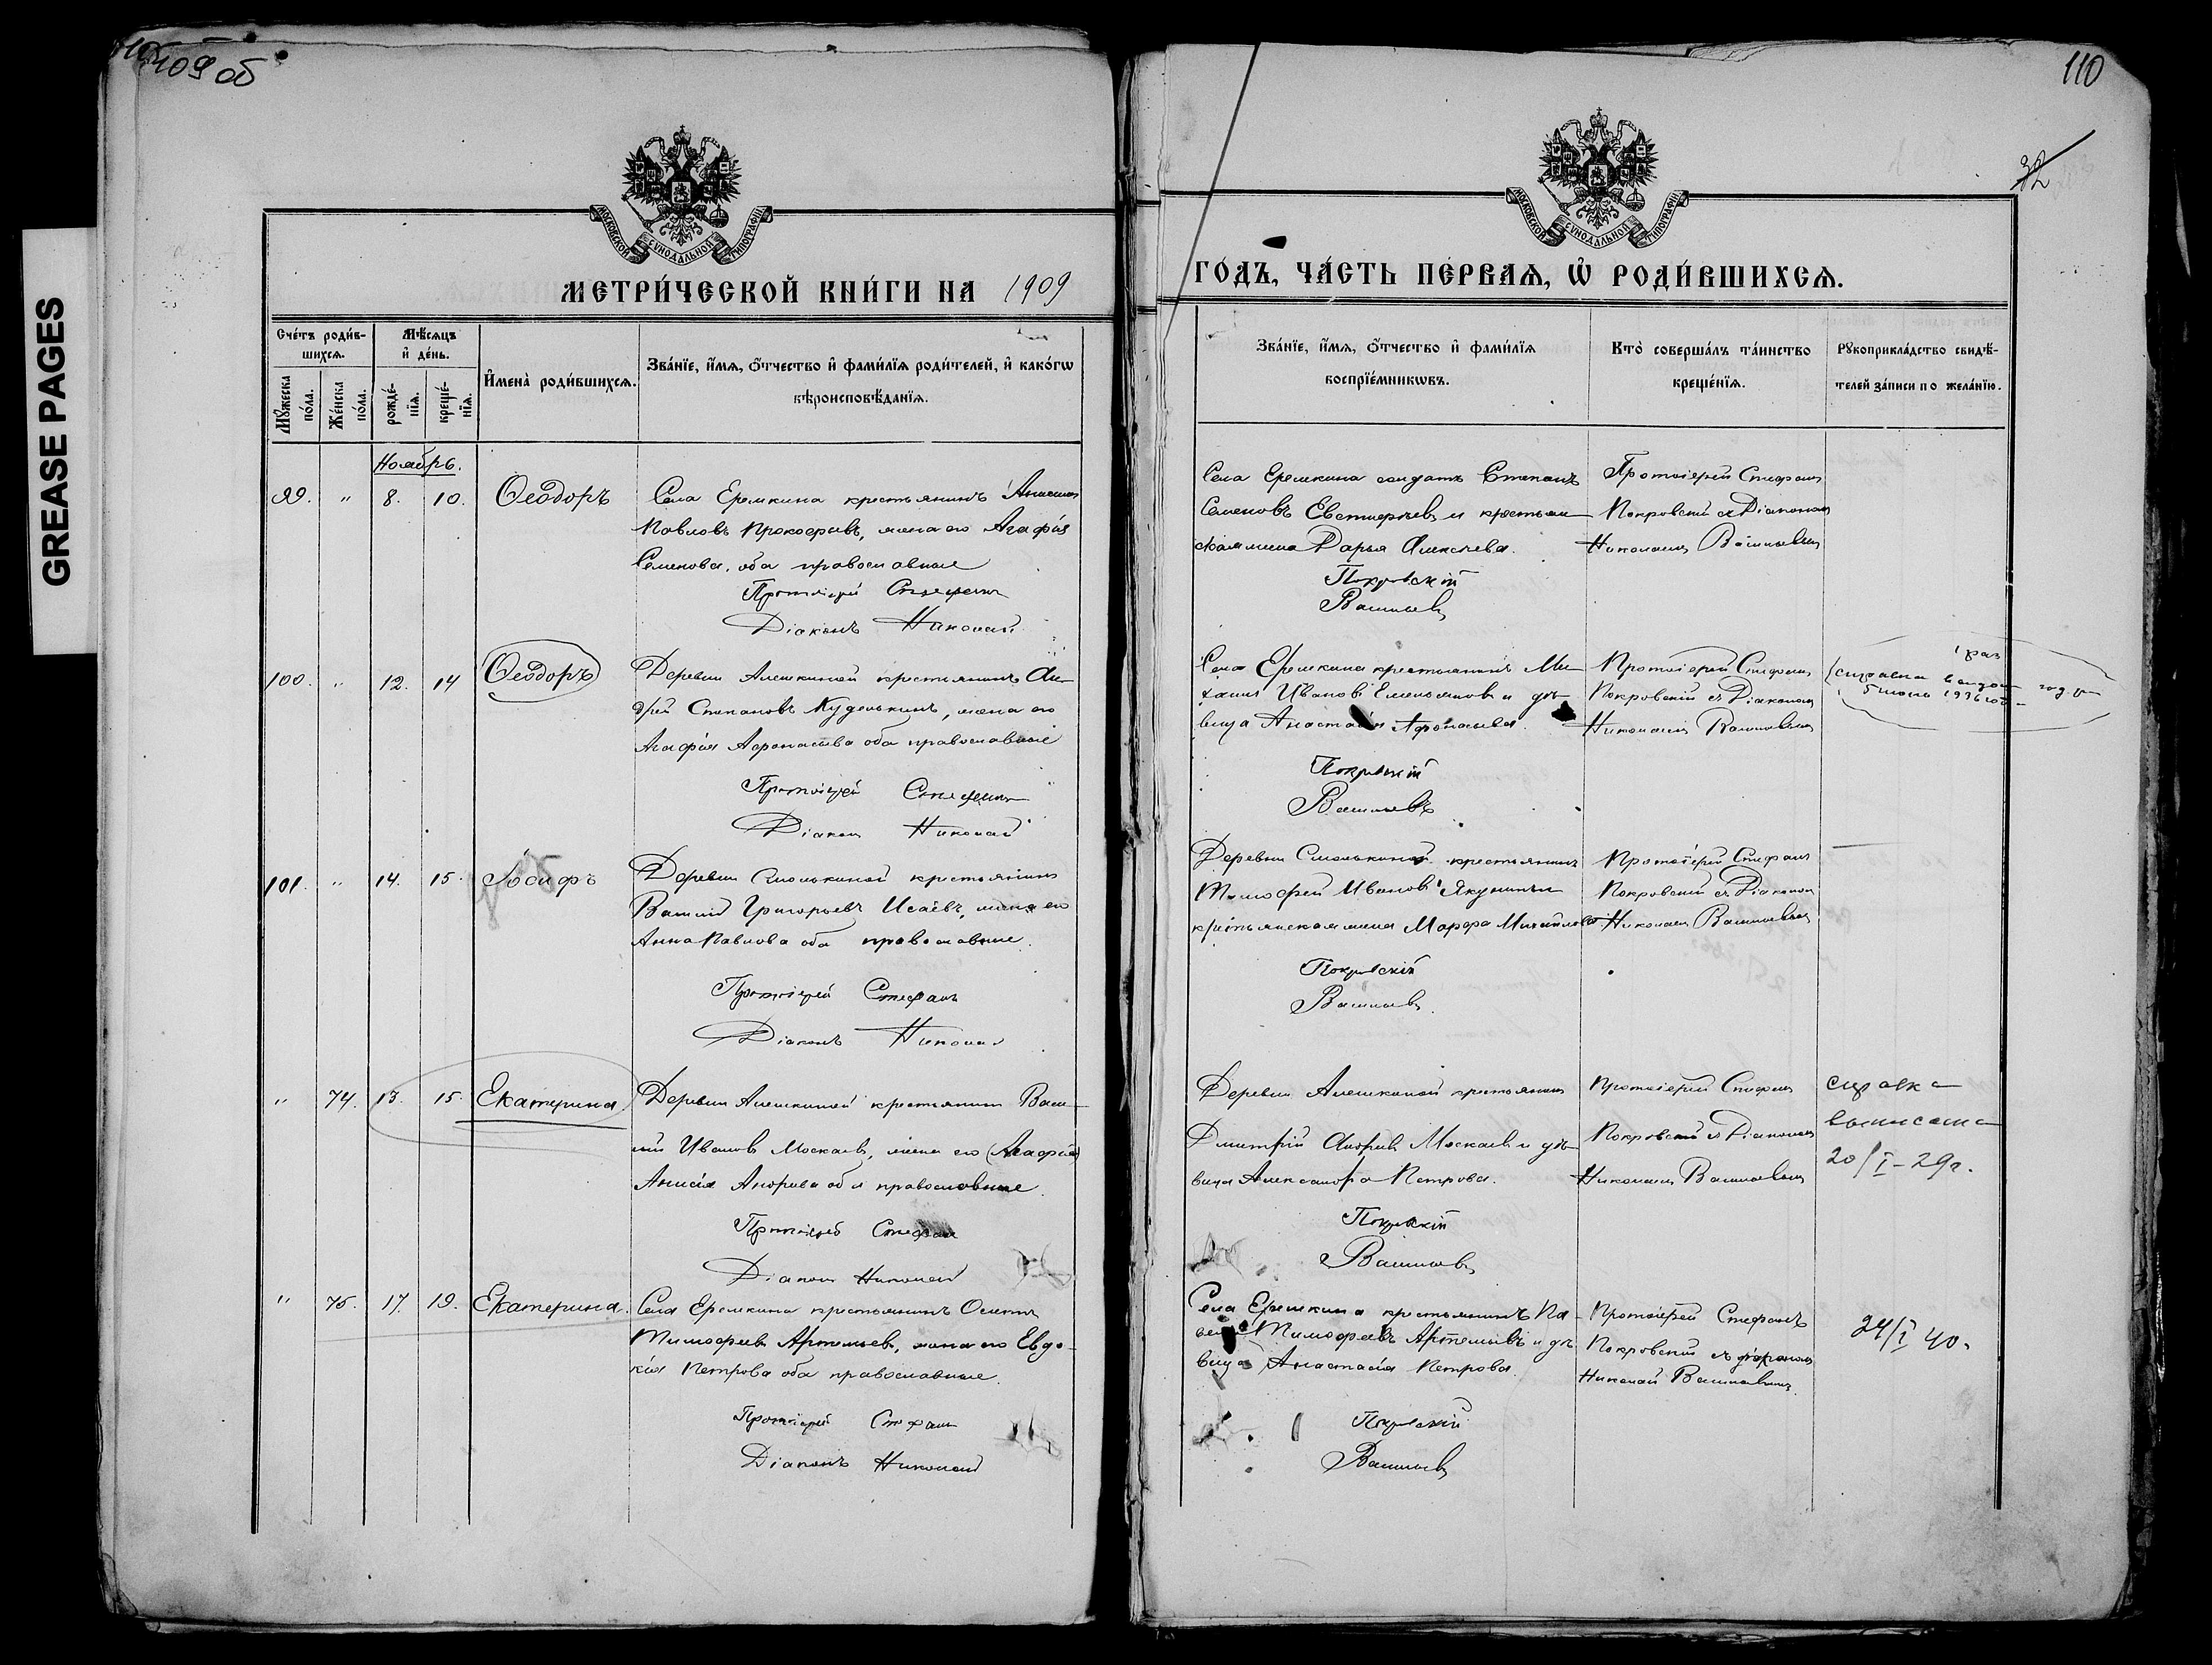 109 об
110
32
GREASE PAGES
МОСКОВСКОЙ СѴНОДАЛЬНОЙ ТИПОГРАФІИ
МОСКОВСКОЙ СѴНОДАЛЬНОЙ ТИПОГРАФІИ
МЕТРИ́ЧЕСКОЙ КНИ́ГИ НА 1909
ГО́ДЪ, ЧА́СТЬ ПЕ́РВАѦ, Ѡ҆ РОДИ́ВШИХСѦ.
Сче́тъ роди́в-
шихсѧ.
Мꙋжеска по́ла.
Же́нска по́ла.
Мѣ́сѧцъ
и҆ де́нь.
рожде́-
нїѧ.
креще́-
нїѧ.
И҆мена̀ роди́вшихсѧ.
Зва́нїе, и҆́мѧ, ѻ҆́тчество и҆ фами́лїѧ роди́телей, и҆ како́гѡ
вѣроисповѣ́данїѧ.
Зва́нїе, и҆́мѧ, ѻ҆́тчество и҆ фами́лїѧ
воспрїе́мникѡвъ.
Кто̀ соверша́лъ та́инство
креще́нїѧ.
Рꙋкоприкла́дство свидѣ́-
телей за́писи по жела́нїю.
Ноябрь.
99. " 8. 10. Ѳеодоръ
Села Еремкина крестьянинъ
Павловъ Прокофьевъ, жена его Агафія
Семенова, оба православные
Протоіерей Стефанъ
Діаконъ Николай
Села Еремкина солдатъ Степанъ
Семеновъ Евстигнѣевъ и крестьян-
ская жена Дарья Алексѣева.
Покровскій
Васильевъ
Протоіерей Стефанъ
Покровскій съ Діакономъ
Николаемъ Васильевымъ
100. " 12. 14 Ѳеодоръ
Деревни Алешкиной крестьянинъ Ан-
дрей Степановъ Куделькинъ, жена его
Агафія Афонасьева оба православные
Протоіерей Стефанъ
Діаконъ Николай
Села Еремкина крестьянинъ Ми-
хаилъ Ивановъ Емельяновъ и дѣ-
вица Анастасія Афонасьева.
Покровскій
Васильевъ
Протоіерей Стефанъ
Покровскій съ Діакономъ
Николаемъ Васильевымъ
справка
1936
101. " 14. 15. Іосифъ
Деревни Смолькиной крестьянинъ
Василій Григорьевъ Исаевъ, жена его
Анна Павлова оба православные.
Протоіерей Стефанъ
Діаконъ Николай
Деревни Смолькиной крестьянинъ
Тимофей Ивановъ Якунинъ и
крестьянская жена Марфа Михайлова.
Покровскій
Васильевъ.
Протоіерей Стефанъ
Покровскій съ Діакономъ
Николаемъ Васильевымъ
" 74. 13. 15. Екатерина.
Деревни Алешкиной крестьянинъ Васи-
лій Ивановъ Москаевъ, жена его (Агафія)
Анисія Андреева оба православные.
Протоіерей Стефанъ
Діаконъ Николай
Деревни Алешкиной крестьянинъ
Дмитрій Андреевъ Москаевъ и дѣ-
вица Александра Петрова.
Покровскій
Васильевъ
Протоіерей Стефанъ
Покровскій съ Діакономъ
Николаемъ Васильевымъ
справка
выписана
20/I-29г.
" 75. 17. 19. Екатерина.
Села Еремкина крестьянинъ
Тимофеевъ Артемьевъ, жена его Евдо-
кія Петрова оба православные.
Протоіерей Стефанъ
Діаконъ Николай
Села Еремкина крестьянинъ Па-
велъ Тимофеевъ Артемьевъ и дѣ-
вица Анастасія Петрова.
Покровскій
Васильевъ
Протоіерей Стефанъ
Покровскій съ діакономъ
Николай Васильевымъ.
24/I 40.